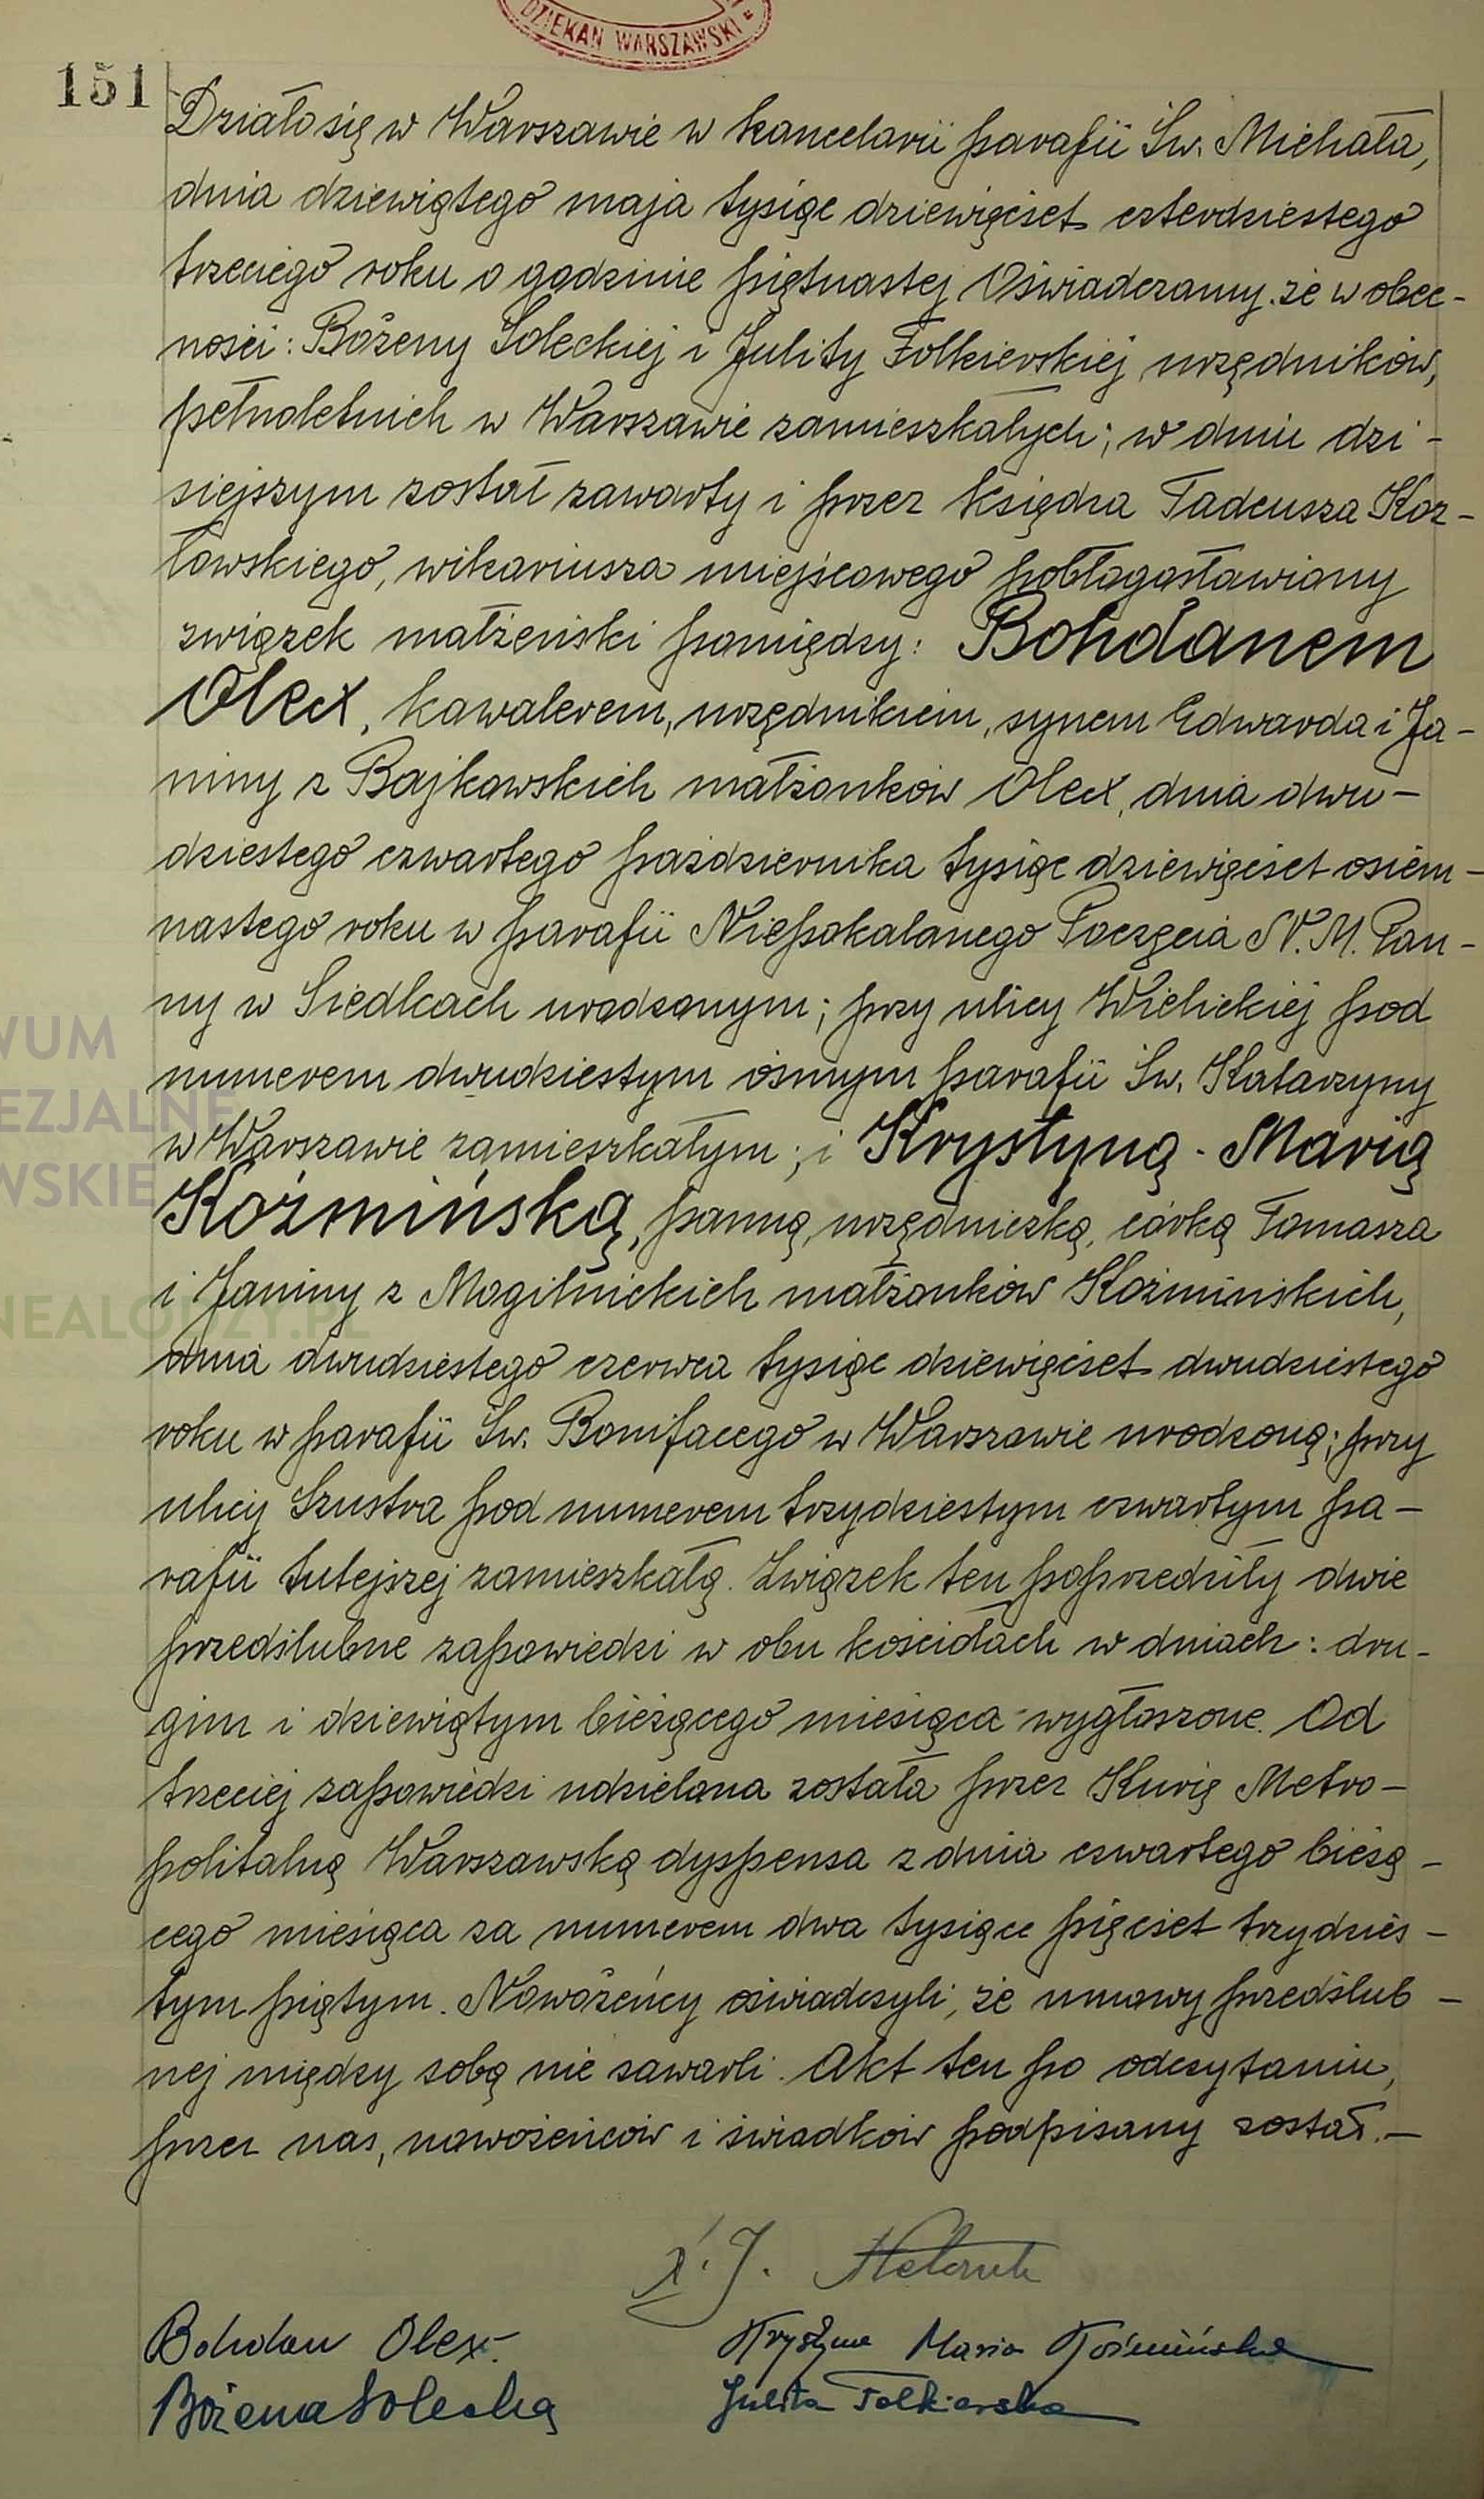 DZIEKAN WARSZAWSKI
151
Działo się w Warszawie w kancelarii parafii Św. Michała,
dnia dziewiątego maja tysiąc dziewięćset czterdziestego
trzeciego roku o godzinie piętnastej Oświadczamy, że w obec-
ności: Bożeny Soleckiej i Julity Folkierskiej urzędników,
pełnoletnich w Warszawie zamieszkałych; w dniu dzi-
siejszym został zawarty i przez księdza Tadeusza Koz-
łowskiego, wikariusza miejscowego pobłogosławiony
związek małżeński pomiędzy: Bohdanem
Olex, kawalerem, urzędnikiem, synem Edwarda i Ja-
niny z Bajkowskich małżonków Olex, dnia dwu-
dziestego czwartego października tysiąc dziewięćset osiem-
nastego roku w parafii Niepokalanego Poczęcia N. M. Pan-
ny w Siedlcach urodzonym; przy ulicy Wielickiej pod
numerem dwudziestym ósmym parafii Św. Katarzyny
w Warszawie zamieszkałym; i Krystyną - Marią
Koźmińską, panną, urzędniczką, córką Tomasza
i Janiny z Mogilnickich małżonków Koźmińskich,
dnia dwudziestego czerwca tysiąc dziewięćset dwudziestego
roku w parafii Św. Bonifacego w Warszawie urodzoną; przy
ulicy Szustra pod numerem trzydziestym czwartym pa-
rafii tutejszej zamieszkałą. Związek ten poprzedziły dwie
przedślubne zapowiedzi w obu kościołach w dniach: dru-
gim i dziewiątym bieżącego miesiąca wygłoszone. Od
trzeciej zapowiedzi udzielona została przez Kurię Metro-
politalną Warszawską dyspensa z dnia czwartego bieżą-
cego miesiąca za numerem dwa tysiące pięćset trzydzies-
tym piątym. Nowożeńcy oświadczyli, że umowy przedślub-
nej między sobą nie zawarli. Akt ten po odczytaniu,
przez nas, nowożeńców i świadków podpisany został.-
X. J.
Bohdan Olex.
Krystyna Maria Koźmińska
Bożena Solecka
Julita Folkierska
WUM
EZJALNE
WSKIE
NEALODZY.PL